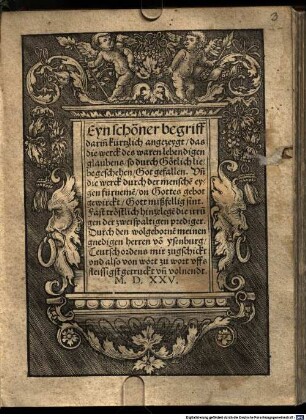 3
Eyn schöner begriff
darin̄ kürtzlich angezeygt / das
die werck des waren lebendigen
glaubens / so durch Götlich lie
be geschehen / Got gefallen. Vn̄
die werck durch der mensche ey
gen fürneme / on Gottes gebot
gewirckt / Gott mißfellig sint.
Fast tröstlich hinzelege die irrũ
gen der zweispaltigen prediger.
Durch den wolgebornē meinen
gnedigen herren vō Ysenburg /
Teutschordens mir zugschickt
vnd also von wort zu wort vff
fleissigst getruckt vn̄ volendt.
M. D. XXV.